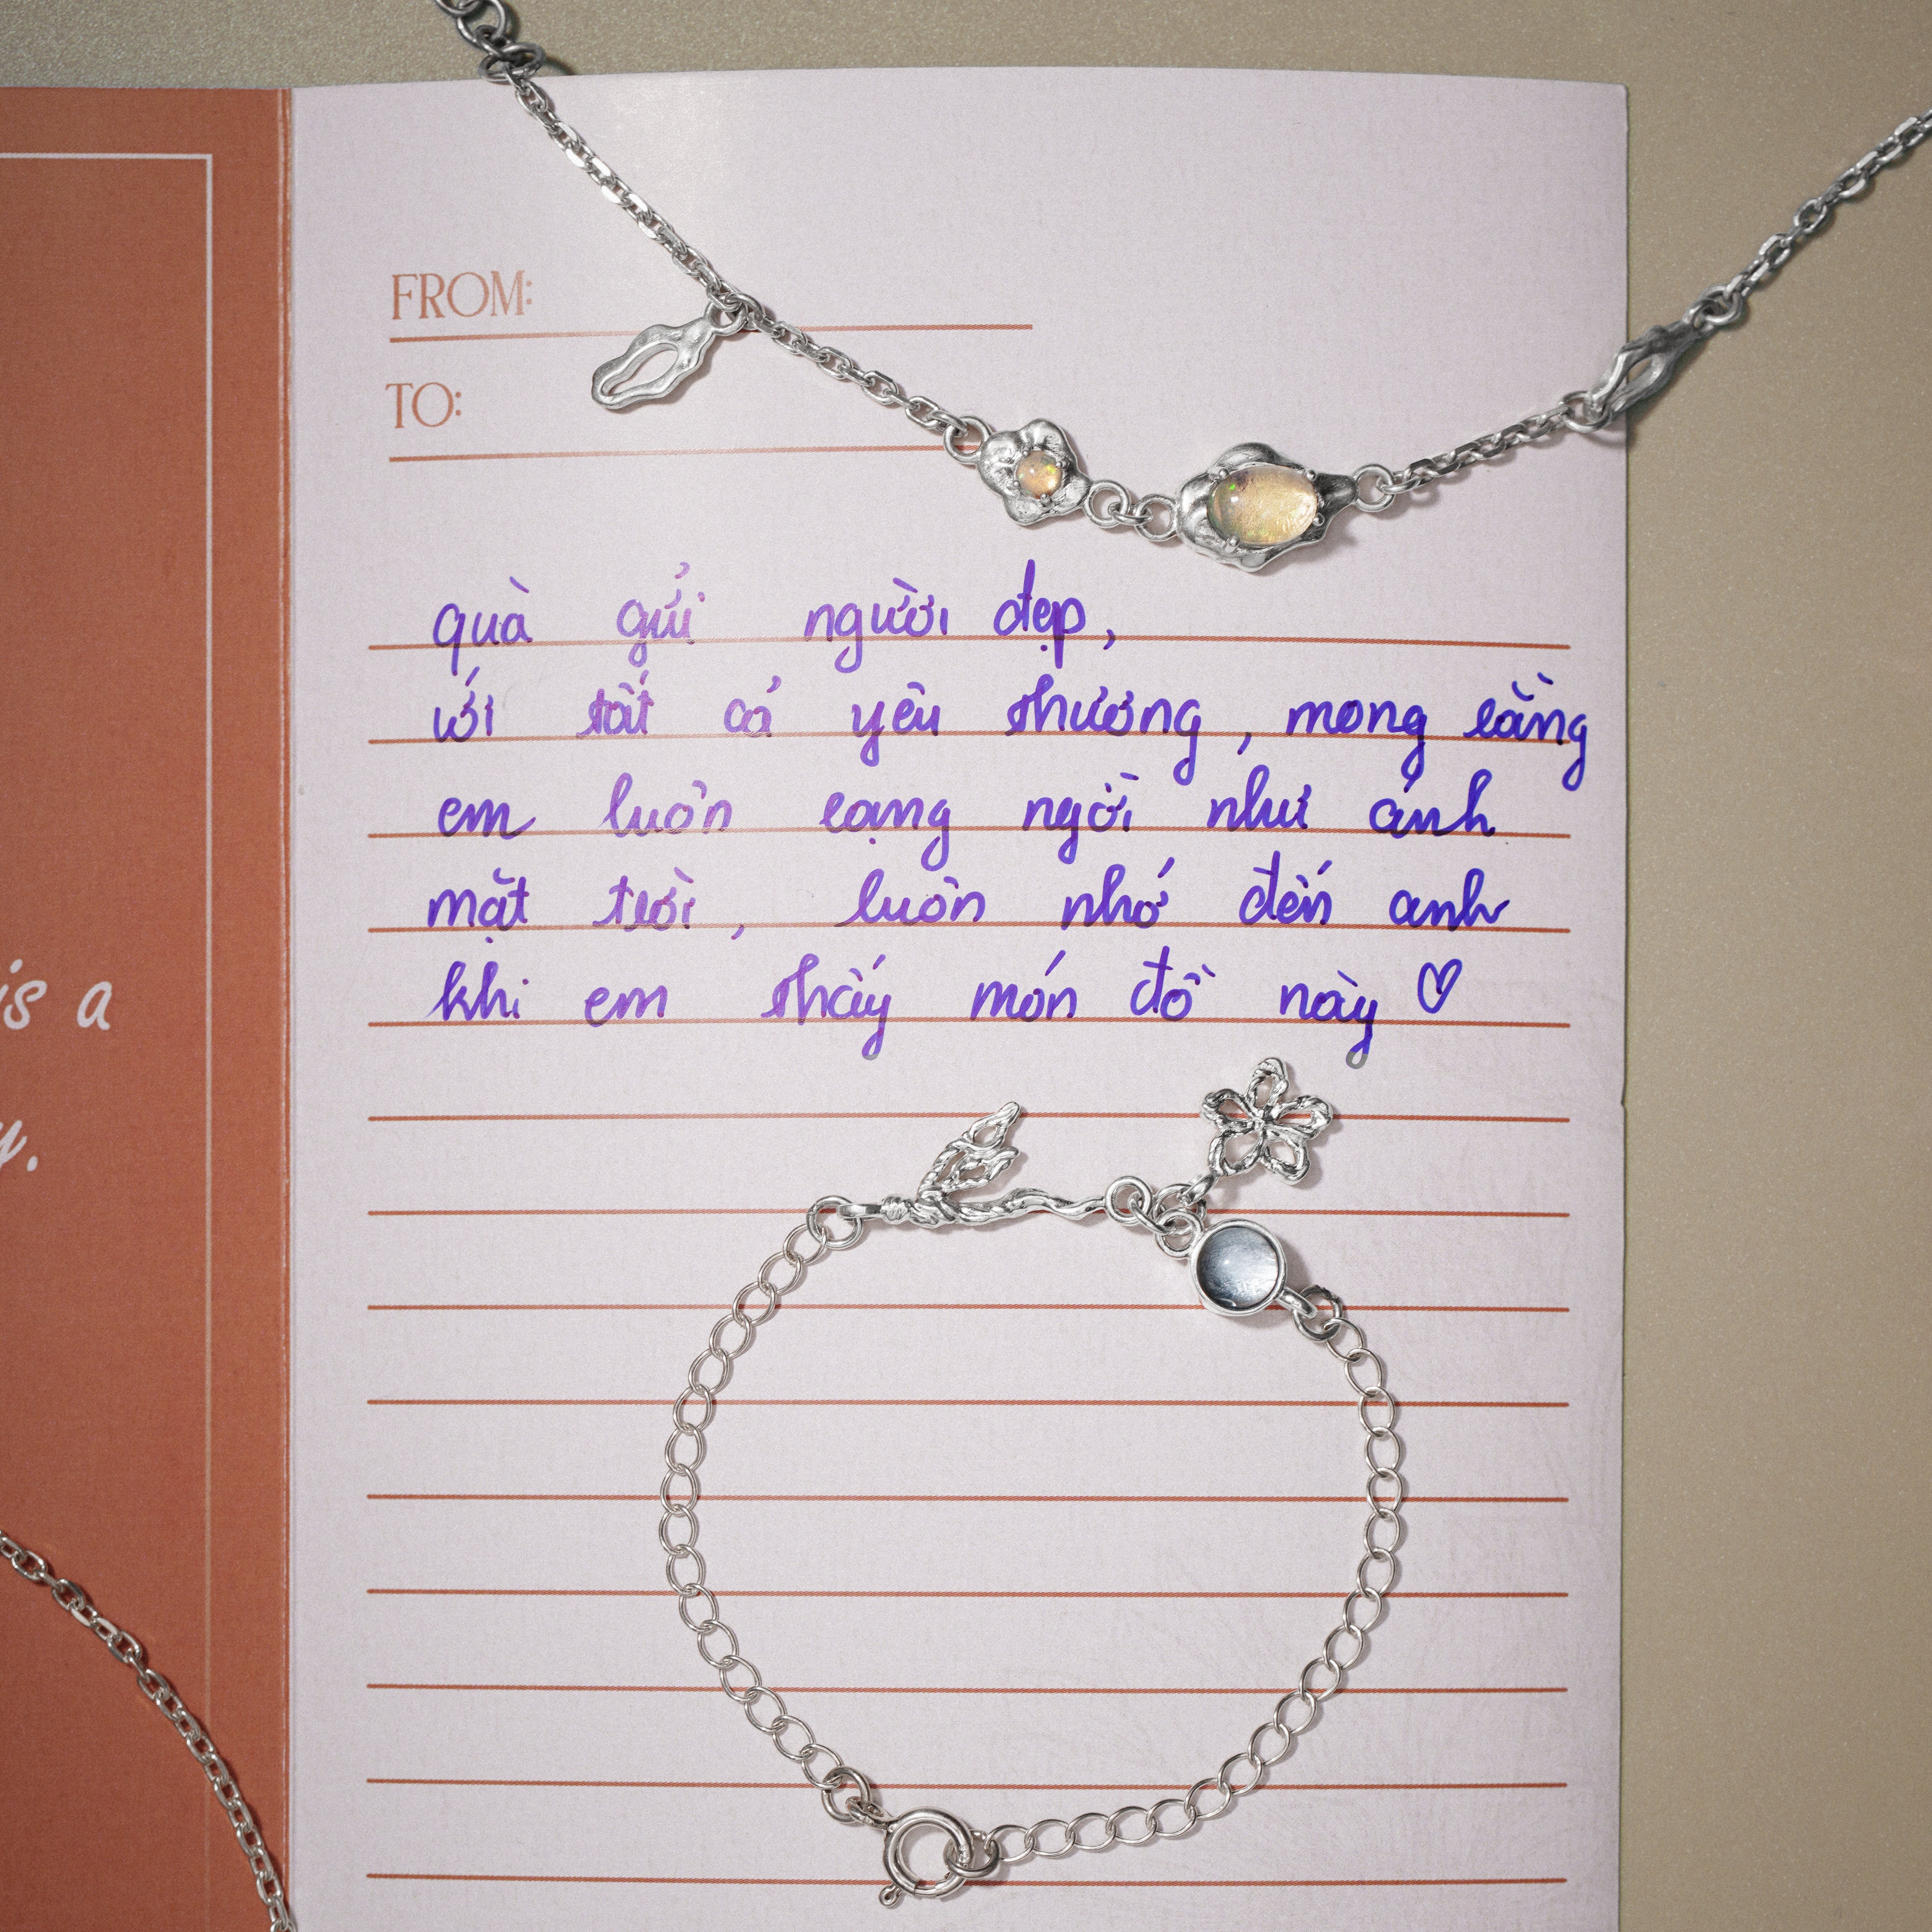 FROM:
TO:
quà gửi người đẹp,
với tất cả yêu thương, mong rằng
em luôn rạng ngời như ánh
mặt trời, luôn nhớ đến anh
khi em thấy món đồ này ♡
is a
y.